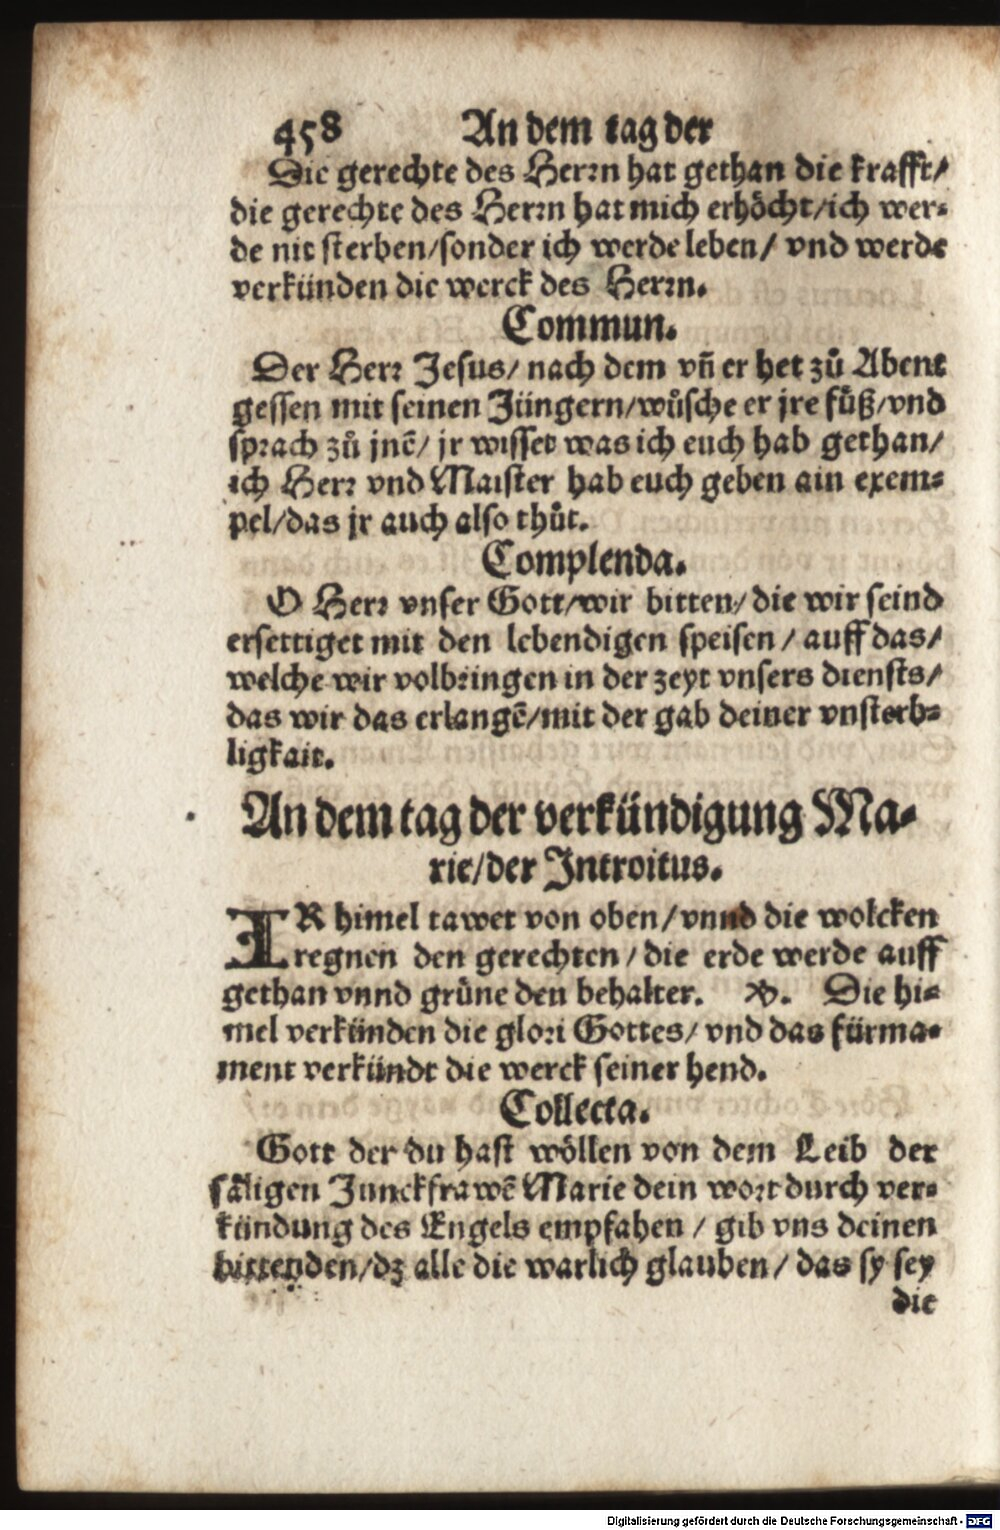 458 An dem tag der
Die gerechte des Herrn hat gethan die krafft/
die gerechte des Herrn hat mich erhöcht/ich wer⸗
de nit sterben/sonder ich werde leben/ vnd werde
verkünden die werck des Herrn.
Commun.
Der Herr Jesus/ nach dem vñ er het zů Abent
gessen mit seinen Jüngern/wůsche er jre fůß/vnd
sprach zů jnē/ jr wisset was ich euch hab gethan/
ich Herr vnd Maister hab euch geben ain exem⸗
pel/das jr auch also thůt.
Complenda.
O Herr vnser Gott/wir bitten/ die wir seind
ersettiget mit den lebendigen speisen/ auff das/
welche wir volbringen in der zeyt vnsers diensts/
das wir das erlangē/mit der gab deiner vnsterb⸗
ligkait.
An dem tag der verkündigung Ma⸗
rie/der Introitus.
IR himel tawet von oben/vnnd die wolcken
regnen den gerechten/die erde werde auff
gethan vnnd grüne den behalter. ℣. Die hi⸗
mel verkünden die glori Gottes/ vnd das fürma⸗
ment verkündt die werck seiner hend.
Collecta.
Gott der du hast wöllen von dem Leib der
säligen Junckfrawē Marie dein wort durch ver⸗
kündung des Engels empfahen/ gib vns deinen
bittenden/dz alle die warlich glauben/ das sy sey
die
Digitalisierung gefördert durch die Deutsche Forschungsgemeinschaft - DFG